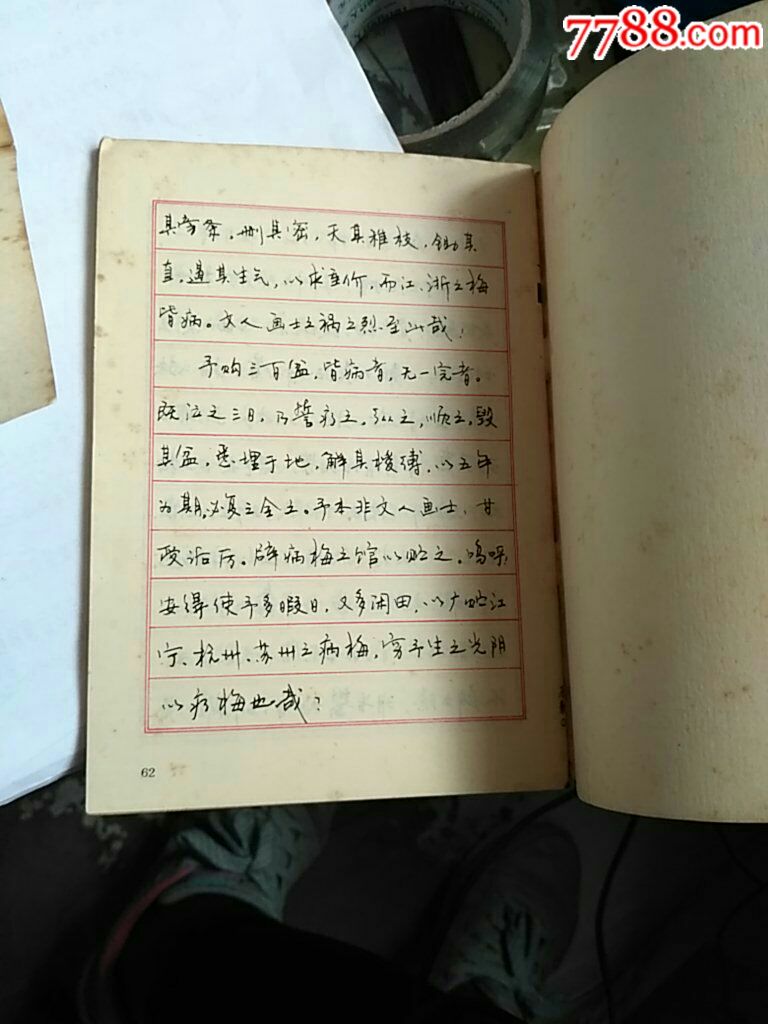 7788.com
其旁条，删其密，夭其稚枝，锄其
直，遏其生气，以求重价，而江、浙之梅
皆病。文人画士之祸之烈至此哉！
予购三百盆，皆病者，无一完者。
既泣之三日，乃誓疗之，纵之，顺之，毁
其盆，悉埋于地，解其棕缚，以五年
为期，必复之全之。予本非文人画士，甘
受诟厉。辟病梅之馆以贮之。呜呼
安得使予多暇日，又多闲田，以广贮江
宁、杭州、苏州之病梅，穷予生之光阴
以疗梅也哉？
62